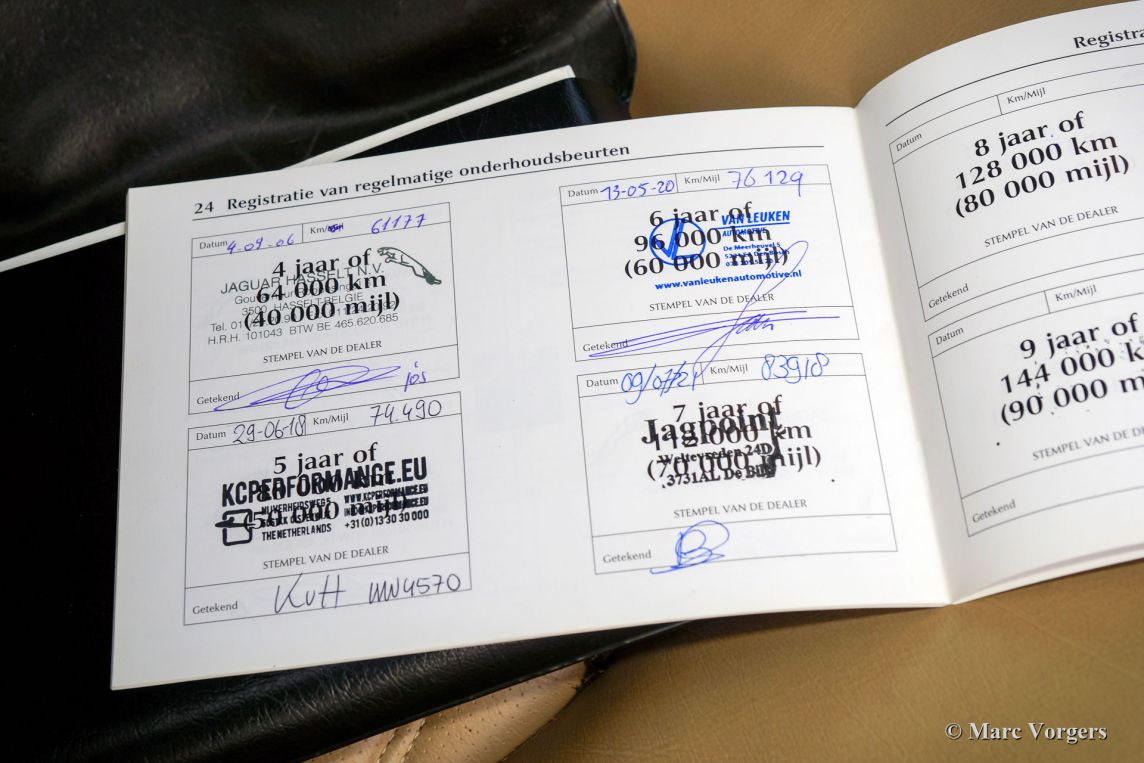 24 Registratie van regelmatige onderhoudsbeurten
Datum 4-09-06 Km/Mijl 61177
4 jaar of
64 000 km
(40 000 mijl)
JAGUAR HASSELT N.V.
3500 HASSELT-BELGIE
H.R.H. 101043 BTW BE 465.620.685
STEMPEL VAN DE DEALER
Getekend jos
Datum 29-06-18 Km/Mijl 74.490
5 jaar of
KCPERFORMANCE.EU
THE NETHERLANDS +31(0)13 30 30 000
STEMPEL VAN DE DEALER
Getekend KvH MN4570
Datum 13-05-20 Km/Mijl 76129
6 jaar of
96 000 km
(60 000 mijl)
VAN LEUKEN
AUTOMOTIVE
De Meerheuvel 5
www.vanleukenautomotive.nl
STEMPEL VAN DE DEALER
Getekend
Datum 09/07/21 Km/Mijl 83918
7 jaar of
112 000 km
(70 000 mijl)
Jagpoint
Weltevreden 24D
3731AL De Bilt
STEMPEL VAN DE DEALER
Getekend
Registra
Datum Km/Mijl
8 jaar of
128 000 km
(80 000 mijl)
STEMPEL VAN DE DEALER
Getekend
Datum Km/Mijl
9 jaar of
144 000 km
(90 000 m
STEMPEL VAN DE DEALER
Getekend
© Marc Vorgers